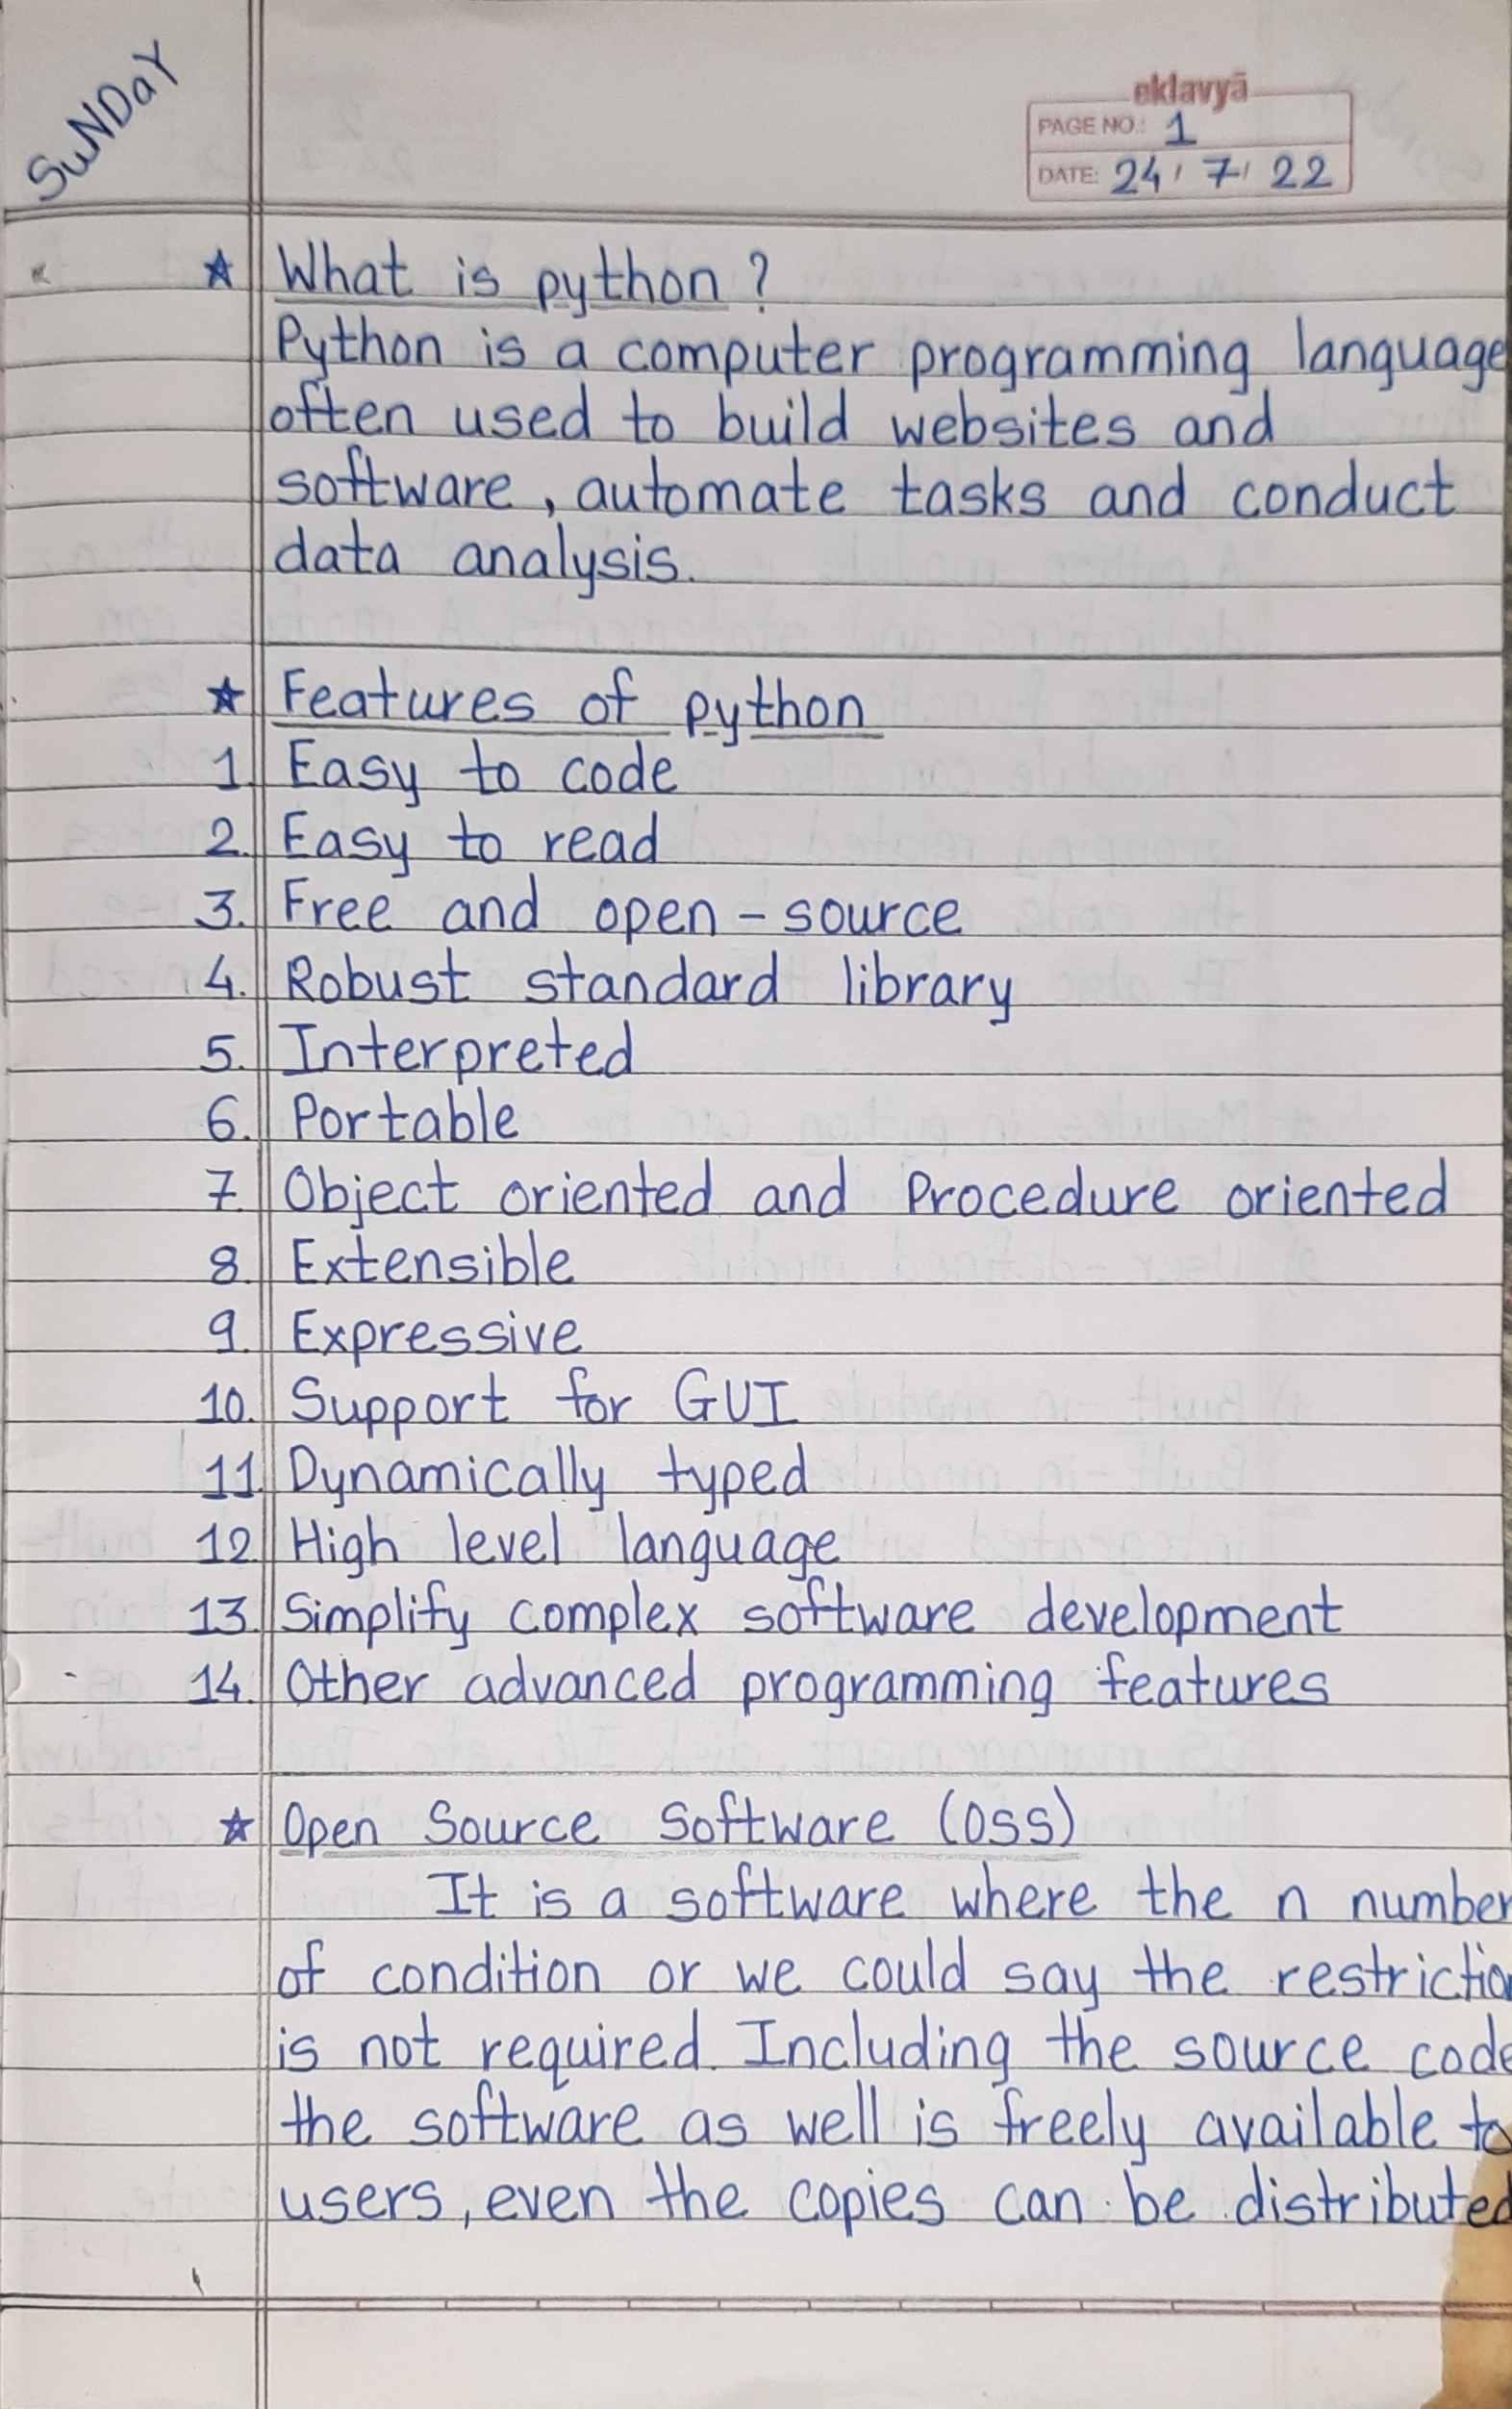 SuNDaY
eklavyā
PAGE NO.: 1
DATE: 24/ 7/ 22
★ What is python ?
Python is a computer programming language
often used to build websites and
software, automate tasks and conduct
data analysis.
★ Features of python
1. Easy to code
2. Easy to read
3. Free and open - source
4. Robust standard library
5. Interpreted
6. Portable
7. Object oriented and Procedure oriented
8. Extensible
9. Expressive
10. Support for GUI
11. Dynamically typed
12. High level language
13. Simplify complex software development
14. Other advanced programming features
★ Open Source Software (OSS)
It is a software where the n number
of condition or we could say the restrictio
is not required. Including the source code
the software as well is freely available to
users, even the copies can be distributed